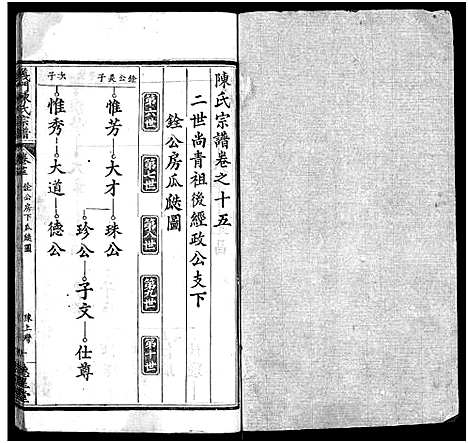 陳氏宗譜卷之十五
二世尚青祖後經政公支下
銓公房瓜瓞圖
第六世
第七世
第八世
第九世
第十世
銓公長子
惟芳—大才—珠公
珍公—子文—仕尊
次子
惟秀—大道—德公
義門陳氏宗譜
銓公房下瓜瓞圖